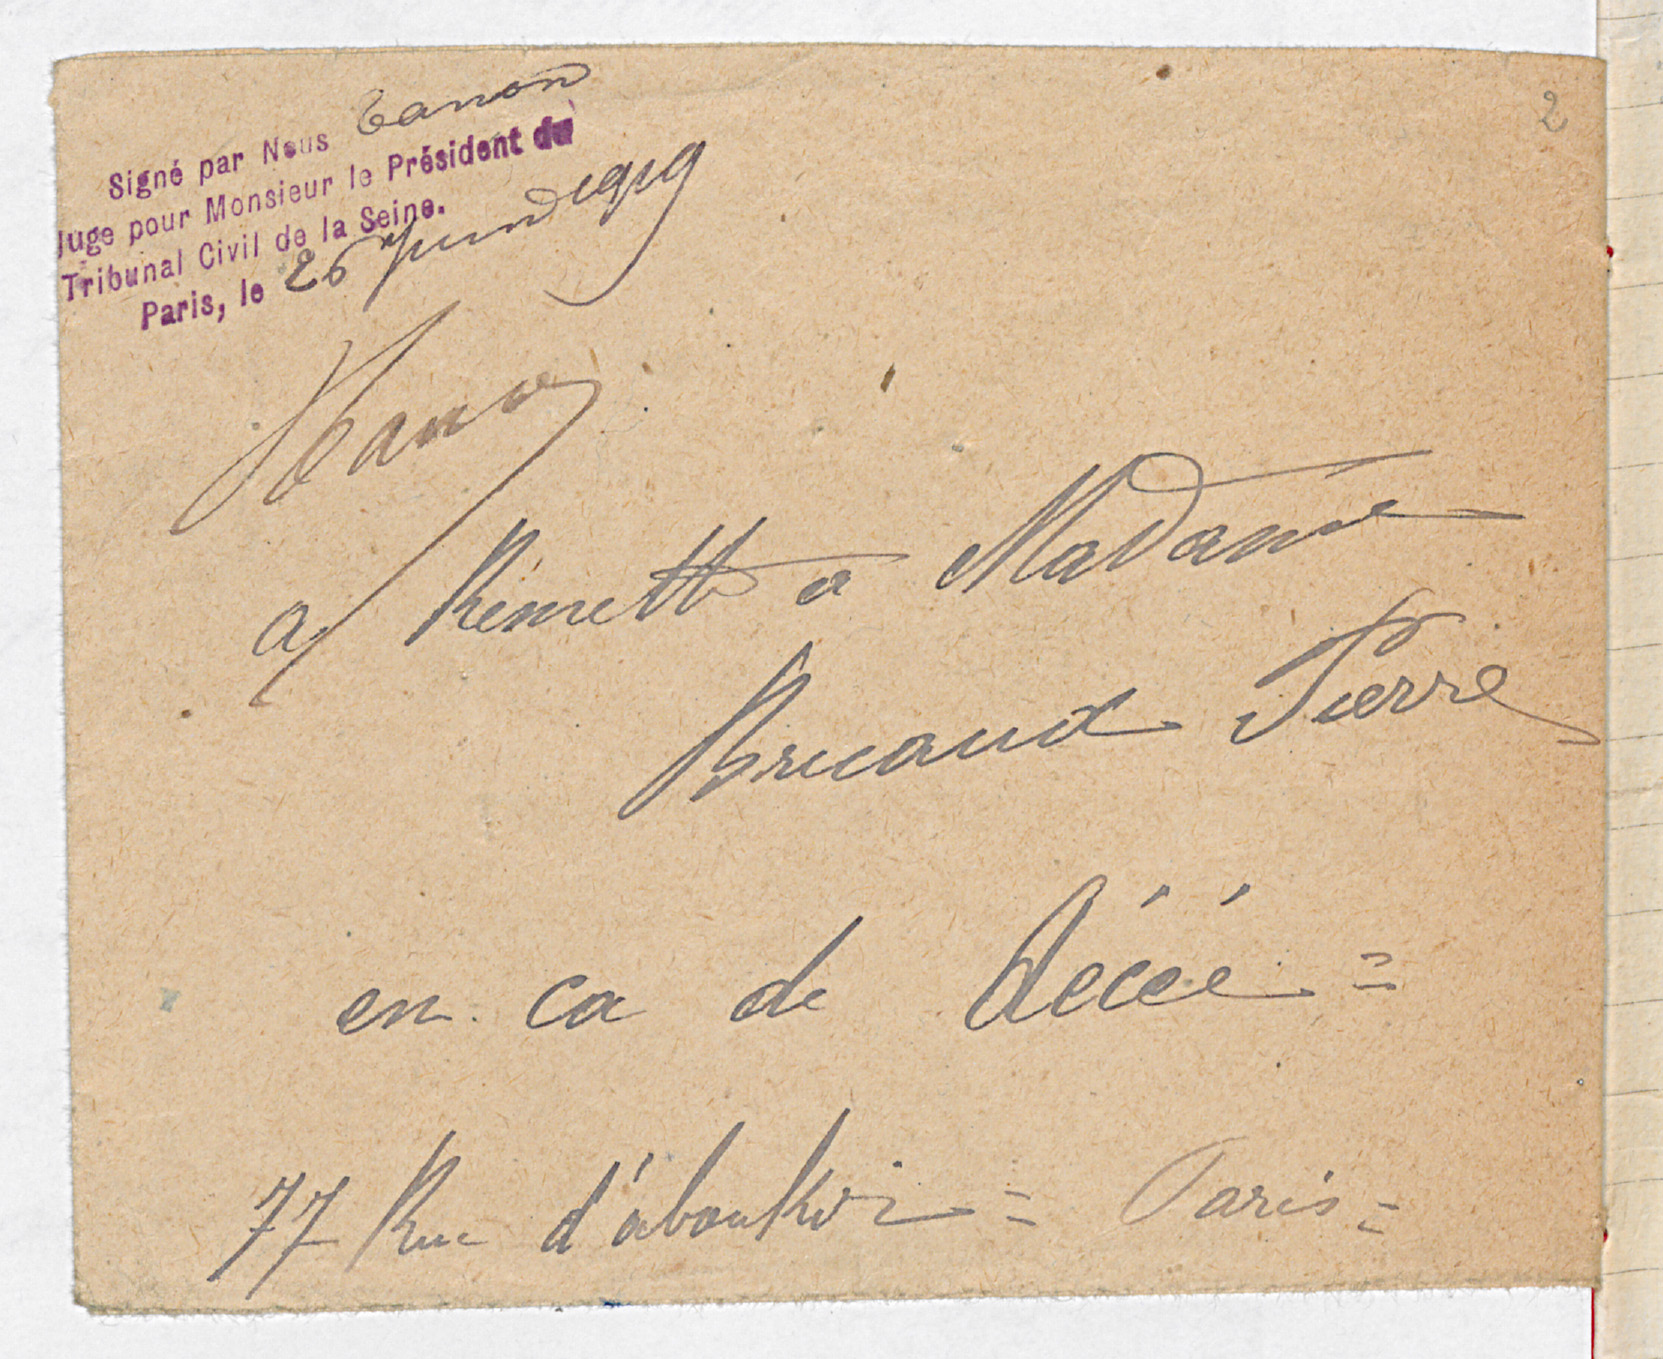 2
Signé par Nous Tanon
Juge pour Monsieur le Président du
Tribunal Civil de la Seine.
Paris, le 26 Juin 1919
a Remettre a Madame
Bricaud Pierre
en ca de décée =
77 Rue d'aboukir = Paris =